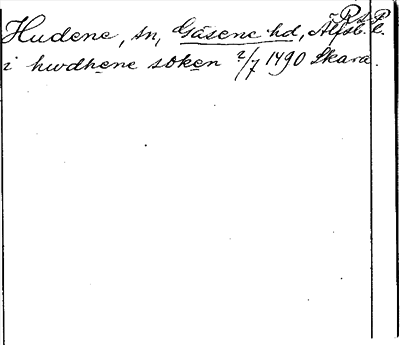 Hudene, sn, Gäsene hd, Älfsb. l.
i hwdhene soken 2/7 1490 Skara.